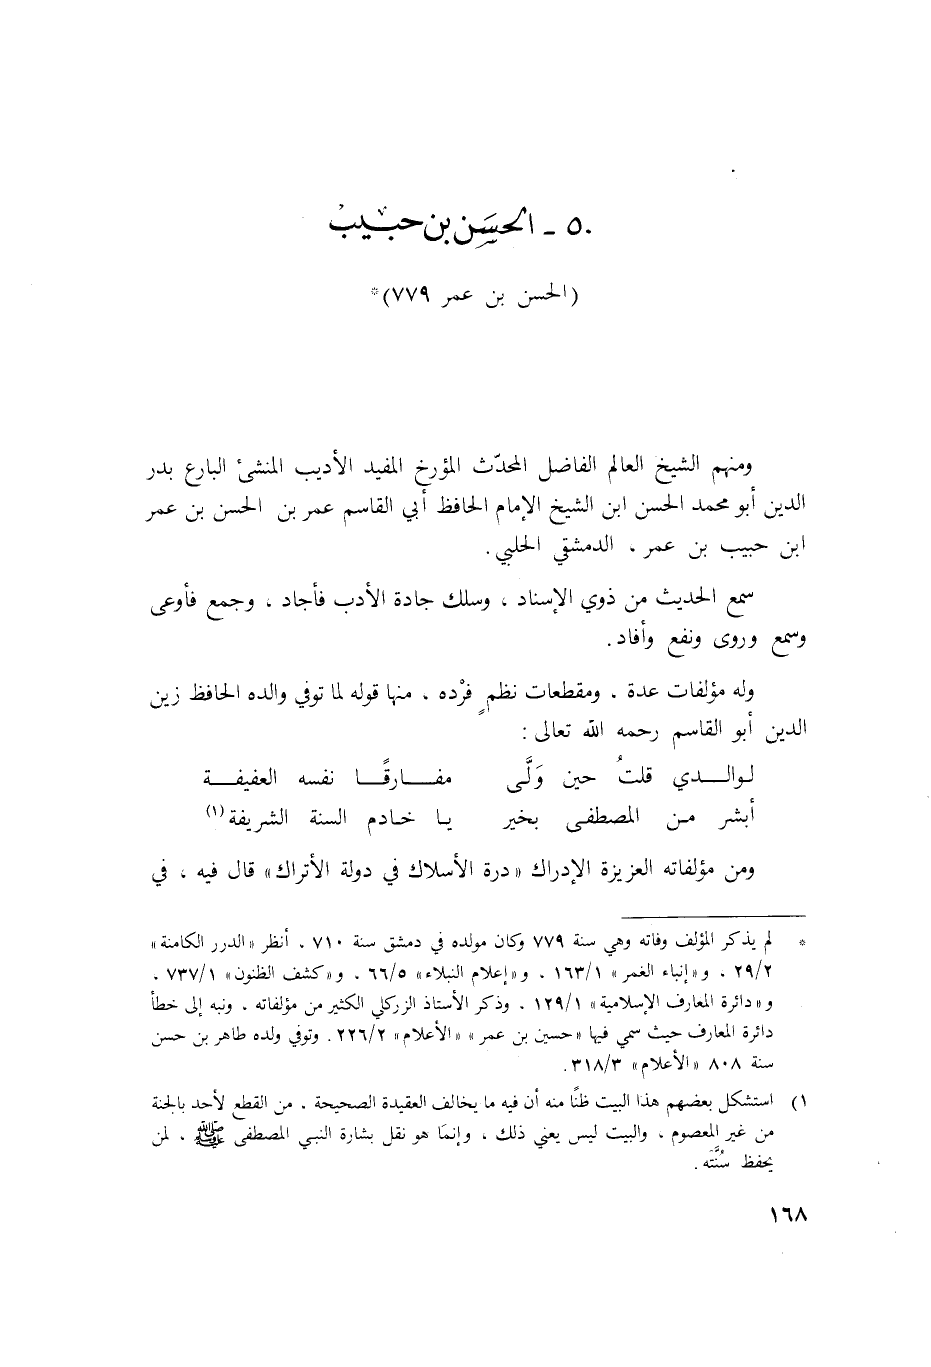 ٥٠ - الحسَن بن حبيب
(الحسن بن عمر ٧٧٩)*
ومنهم الشيخ العالم الفاضل المحدّث المؤرخ المفيد الأديب المنشئ البارع بدر
الدين أبو محمد الحسن ابن الشيخ الإمام الحافظ أبي القاسم عمر بن الحسن بن عمر
ابن حبيب بن عمر ، الدمشقي الحلبي .
سمع الحديث من ذوي الإسناد ، وسلك جادة الأدب فأجاد ، وجمع فأوعى
وسمع وروى ونفع وأفاد .
وله مؤلفات عدة ، ومقطعات نظمٍ فرْده ، منها قوله لما توفي والده الحافظ زين
الدين أبو القاسم رحمه الله تعالى :
لوالدي قلتُ حين وَلَّى مفارقًا نفسه العفيفة
أبشر من المصطفى بخير يا خادم السنة الشريفة (١)
ومن مؤلفاته العزيزة الإدراك «درة الأسلاك في دولة الأتراك» قال فيه ، في
* لم يذكر المؤلف وفاته وهي سنة ٧٧٩ وكان مولده في دمشق سنة ٧١٠ ، أنظر «الدرر الكامنة»
٢٩/٢ ، و«إنباء الغمر» ١٦٣/١ ، و«إعلام النبلاء» ٦٦/٥ ، و«كشف الظنون» ٧٣٧/١ ،
و«دائرة المعارف الإسلامية» ١٢٩/١ ، وذكر الأستاذ الزركلي الكثير من مؤلفاته ، ونبه إلى خطأ
دائرة المعارف حيث سمي فيها «حسين بن عمر» «الأعلام» ٢٢٦/٢ . وتوفي ولده طاهر بن حسن
سنة ٨٠٨ «الأعلام» ٣١٨/٣ .
١) استشكل بعضهم هذا البيت ظنًا منه أن فيه ما يخالف العقيدة الصحيحة ، من القطع لأحد بالجنة
من غير المعصوم ، والبيت ليس يعني ذلك ، وإنما هو نقل بشارة النبي المصطفى ﷺ ، لمن
يحفظ سُنَّته .
١٦٨